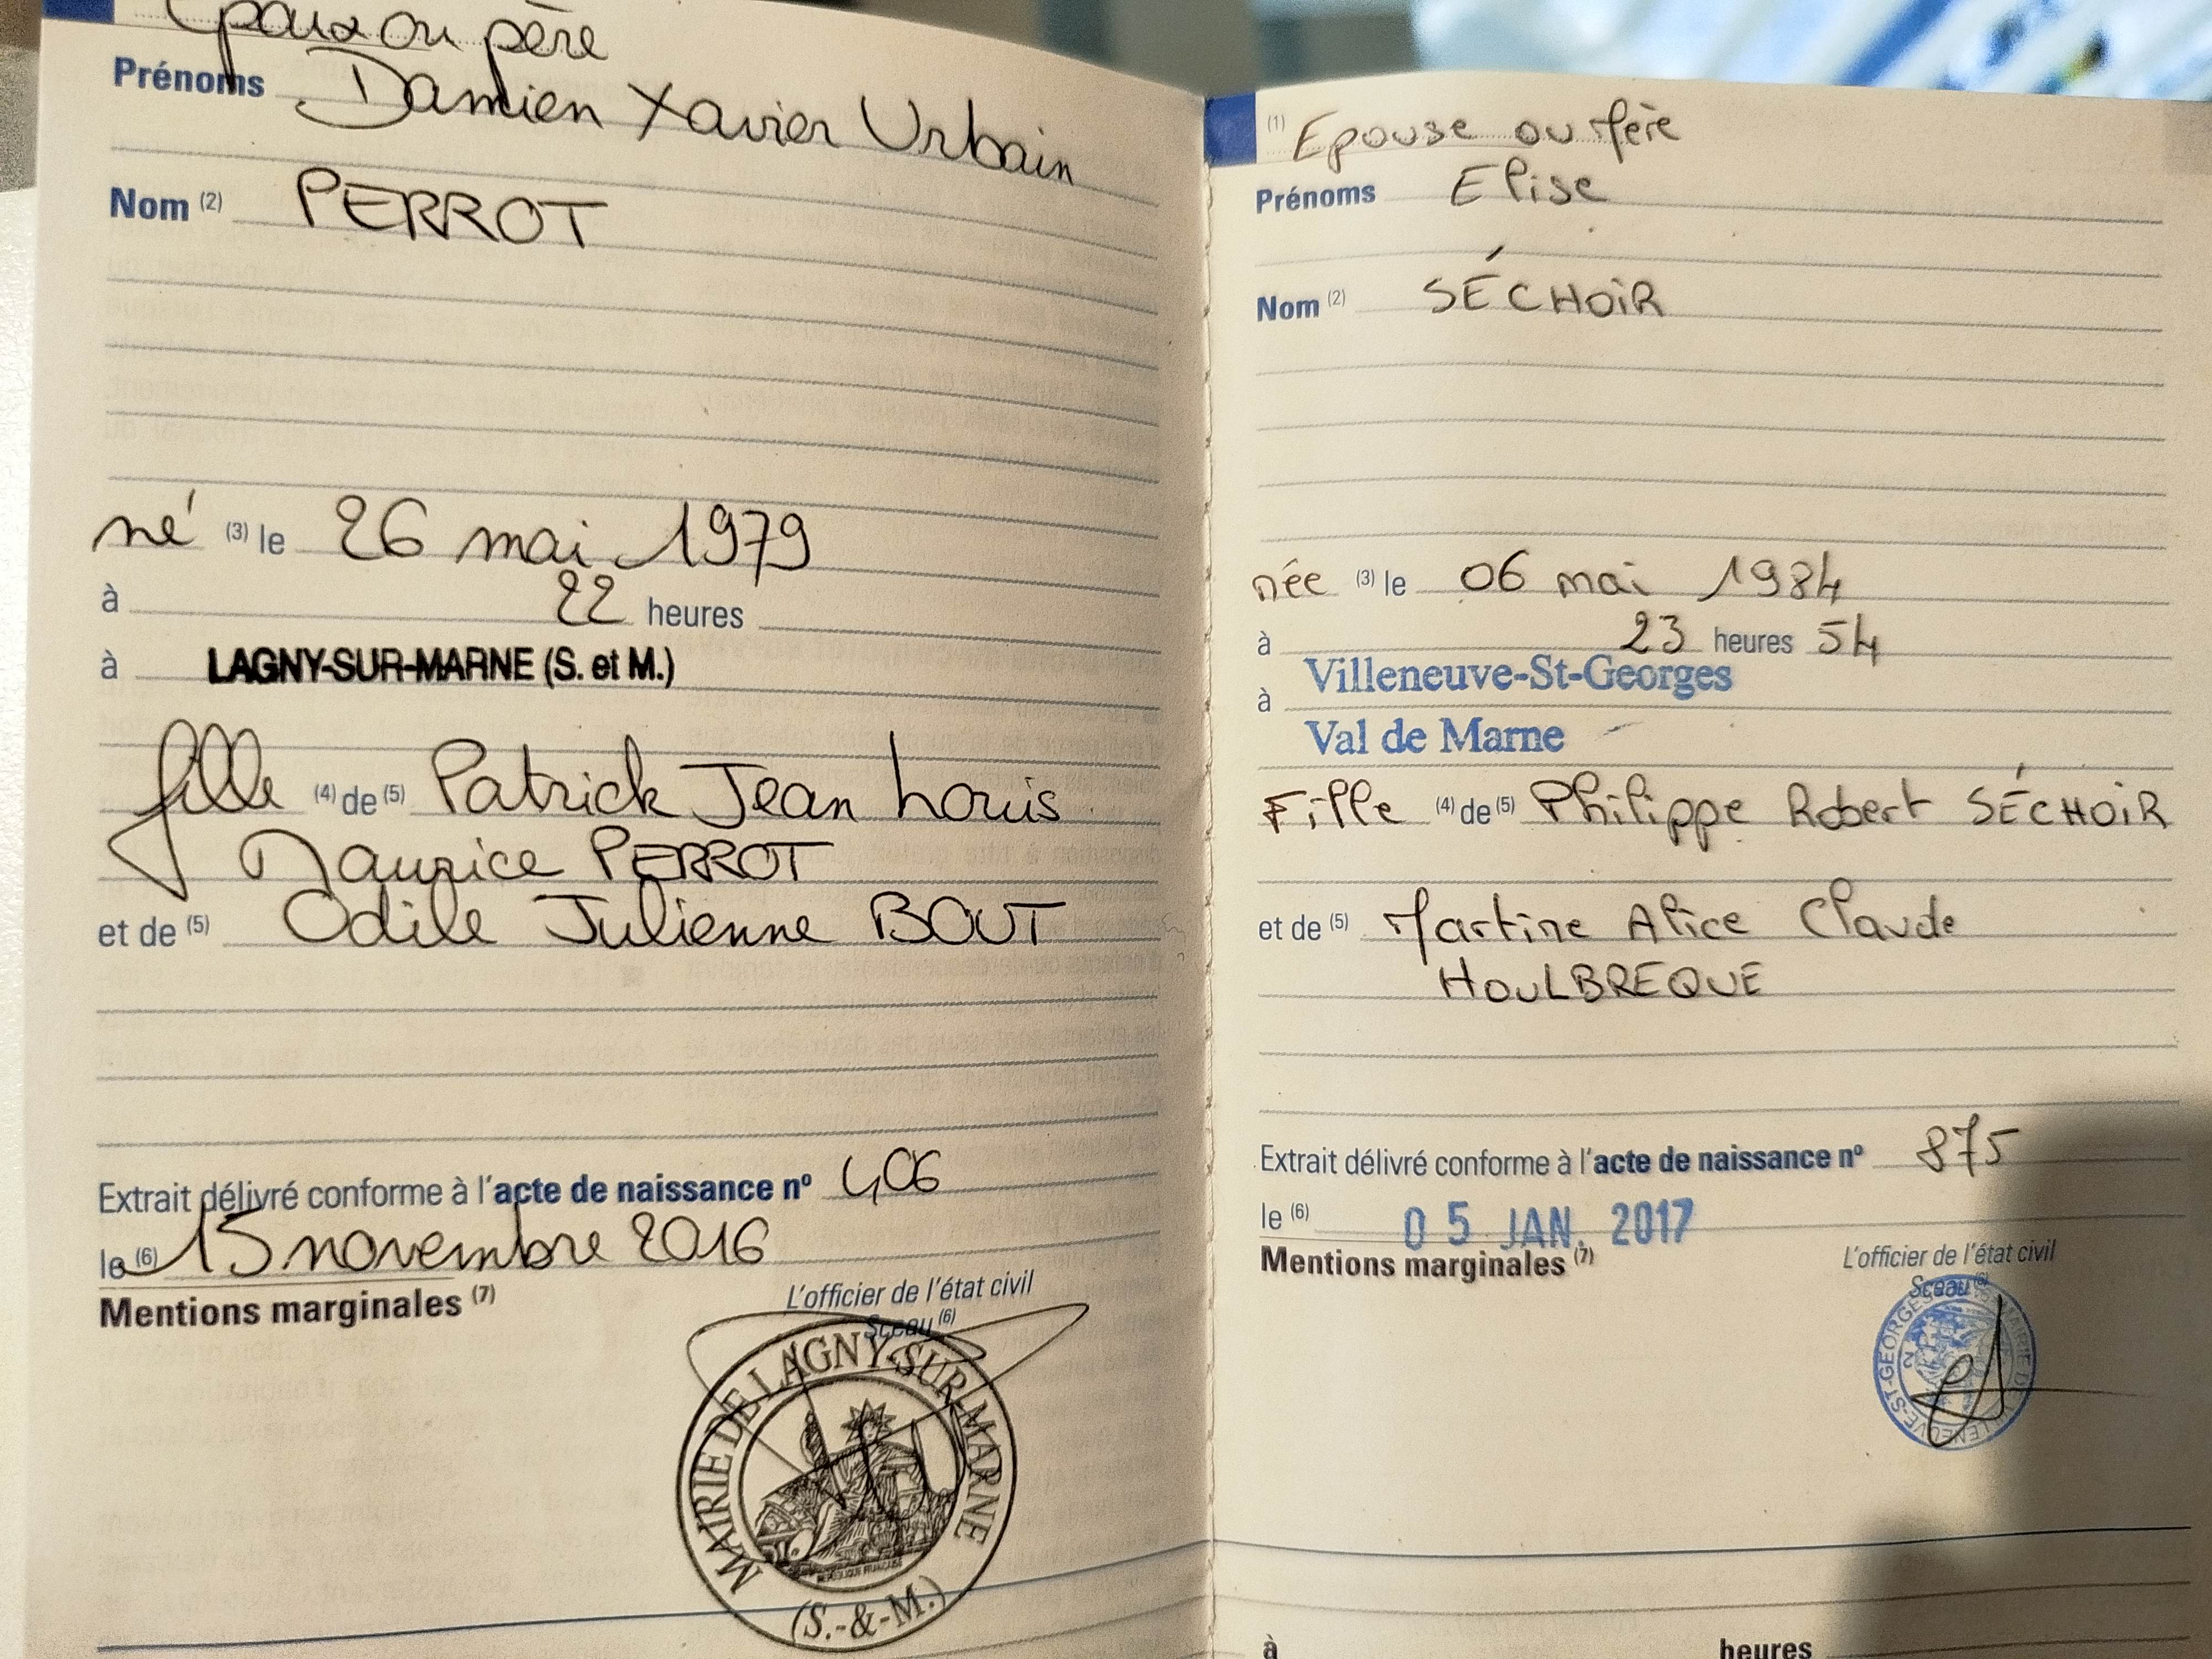 Epoux ou père
Prénoms Damien Xavier Urbain
Nom (2) PERROT
né (3) le 26 mai 1979
à 22 heures
à LAGNY-SUR-MARNE (S. et M.)
fille (4) de (5) Patrick Jean Louis
Maurice PERROT
et de (5) Odile Julienne BOUT
Extrait délivré conforme à l'acte de naissance nº 406
le (6) 15 novembre 2016
Mentions marginales (7)
L'officier de l'état civil
Sceau (6)
MAIRIE DE LAGNY-SUR-MARNE
RÉPUBLIQUE FRANÇAISE
(S.-&-M.)
(1) Epouse ou Mère
Prénoms Elise
Nom (2) SÉCHOIR
née (3) le 06 mai 1984
à 23 heures 54
à Villeneuve-St-Georges
Val de Marne
Fille (4) de (5) Philippe Robert SÉCHOIR
et de (5) Martine Alice Claude
HOULBREQUE
Extrait délivré conforme à l'acte de naissance nº 875
le (6) 05 JAN. 2017
Mentions marginales (7)
L'officier de l'état civil
Sceau (6)
MAIRIE DE VILLENEUVE-ST-GEORGES
à heures